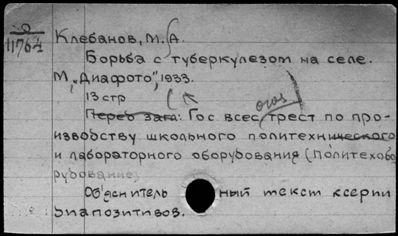 О
11764
Клебанов, М. А.
Борьба с туберкулезом на селе.
М, „Диафото", 1933.
13 стр
огоз
Перед загл: Гос всес трест по про-
изводству школьного политехнического
и лабораторного оборудования (Политехобо
рудование)
Об'яснитель ный текст к серии
диапозитивов.